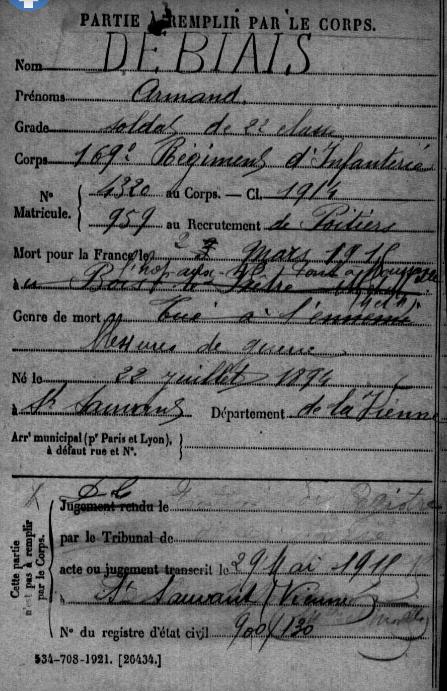 PARTIE À REMPLIR PAR LE CORPS.
Nom DEBIAIS
Prénoms Armand.
Grade soldat de 2e classe
Corps 169e Régiment d'Infanterie
N° Matricule. { 1320 au Corps. — Cl. 1914
959 au Recrutement de Poitiers
Mort pour la France le 2 Mars 1915
à l'hop. aux
Bois le Prêtre
Genre de mort Tué à l'ennemi
blessures de guerre
Né le 22 juillet 1894
à St Sauvant Département de la Vienne
Arrt municipal (pr Paris et Lyon), à défaut rue et N°. }
Cette partie n'est pas à remplir par le Corps.
Jugement rendu le
par le Tribunal de
acte ou jugement transcrit le 29 Mai 1915
à St Sauvant (Vienne)
N° du registre d'état civil 900/130
534-708-1921. [26434.]